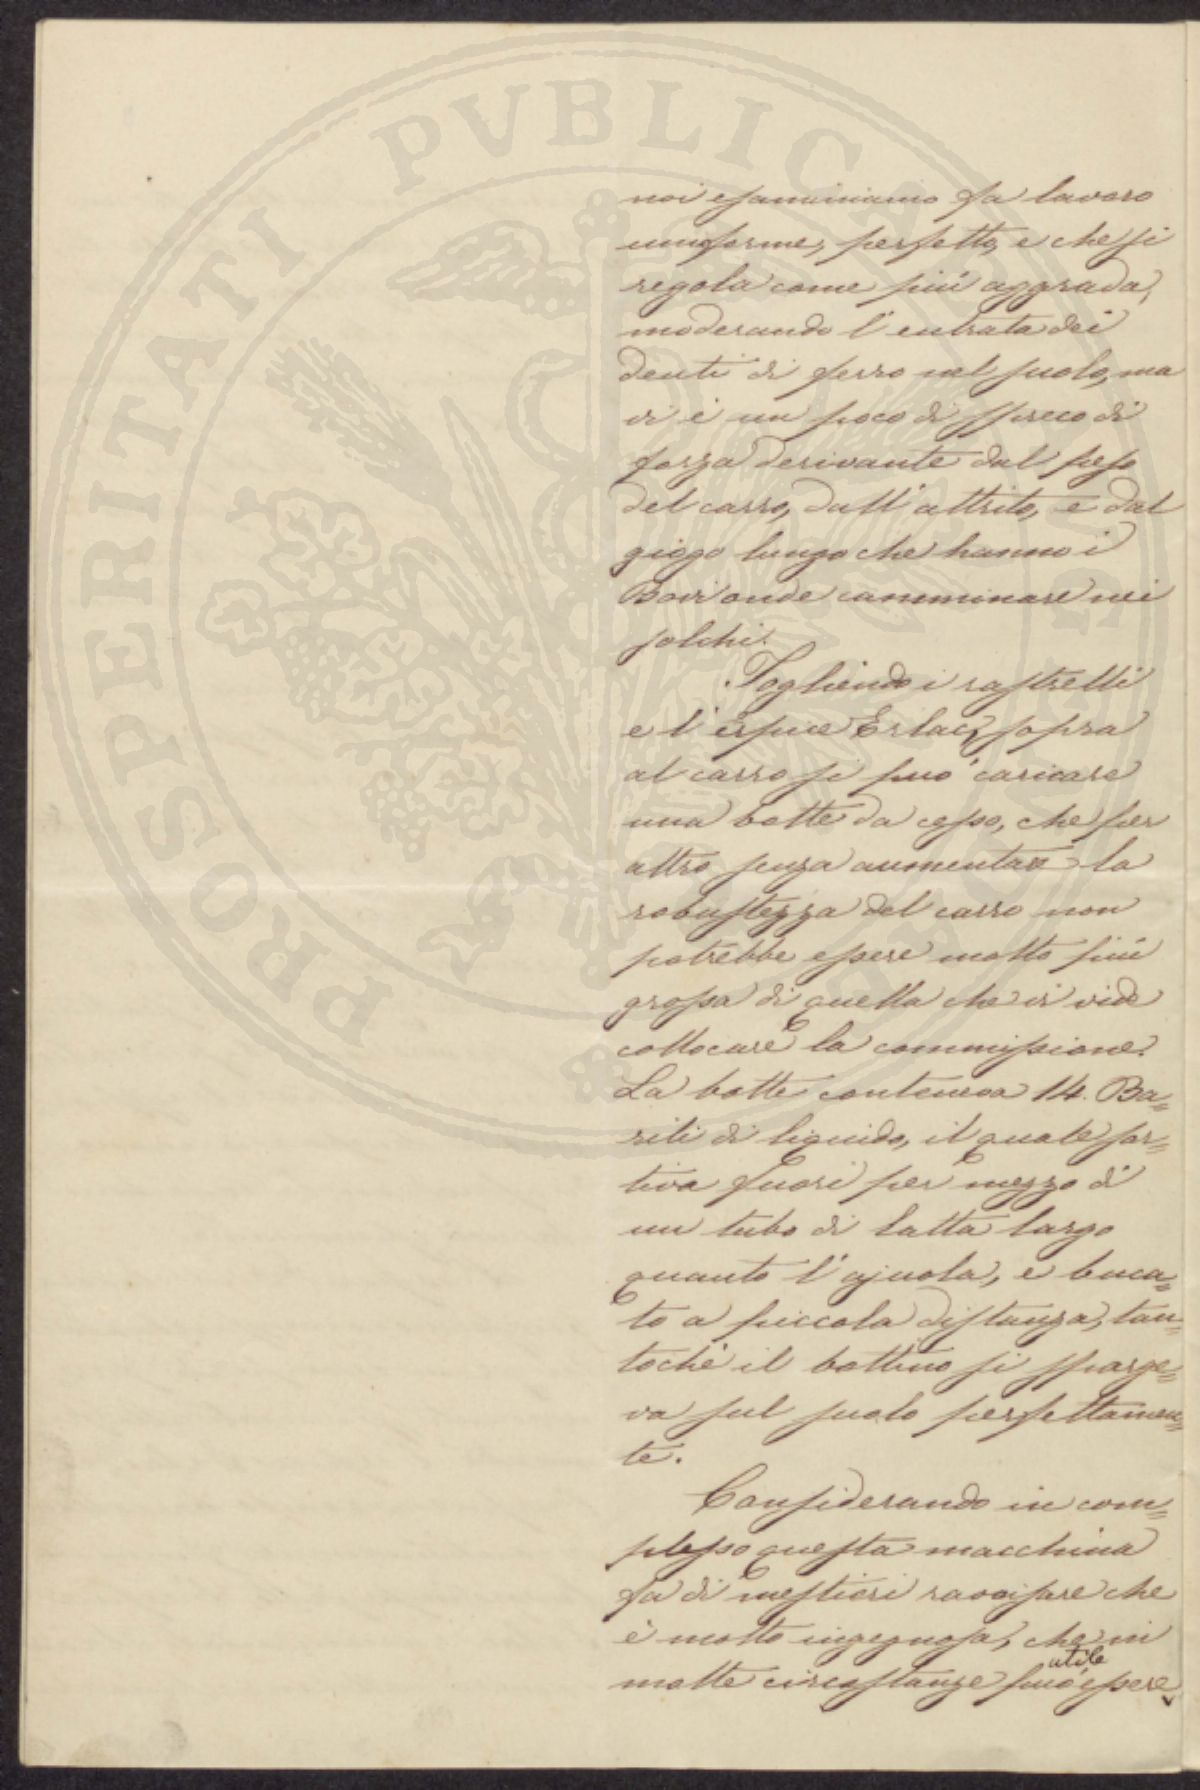 PROSPERITATI PVBLICAE AVGENDAE
noi esaminiamo fa lavoro
uniforme, perfetto, e che si
regola come più aggrada,
moderando l'entrata dei
denti di ferro nel suolo, ma
vi è un poco di spreco di
forza derivante dal peso
del carro, dall'attrito, e dal
giogo lungo che hanno i
Bovi onde camminare nei
solchi.
Togliendo i rastrelli
e l'erpice sopra
al carro si può caricare
una botte da cesso, che per
altro senza aumentare la
robustezza del carro non
potrebbe essere molto più
grossa di quella che vi vide
collocare la commissione.
La botte conteneva 14. Ba=
rili di liquido, il quale sor=
tiva fuori per mezzo di
un tubo di latta largo
quanto l'ajuola, e buca=
to a piccola distanza, tan=
tochè il bottino si sparge=
va sul suolo perfettamen=
te.
Considerando in com=
plesso questa macchina
fa di mestieri ravvisare che
è molto ingegnosa, che in
molte circostanze può essere utile